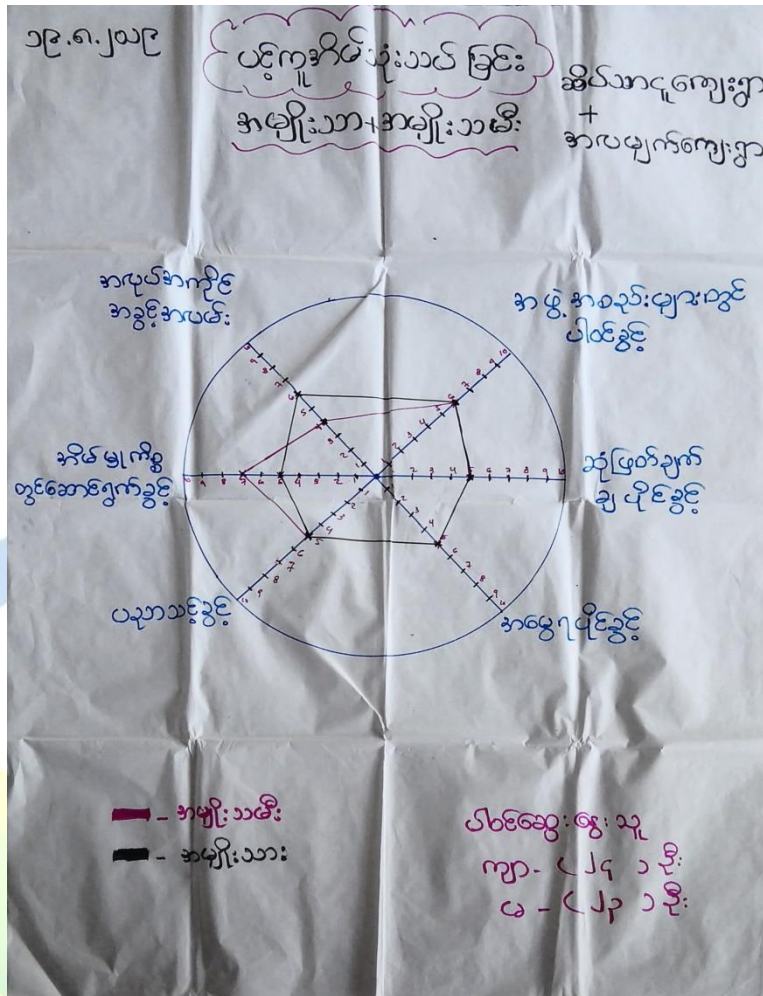 ၁၉.၈.၂၀၁၉
ပင့်ကူအိမ်သုံးသပ်ခြင်း
အမျိုးသား+အမျိုးသမီး
ဆိပ်သာငူကျေးရွာ
+
အလမျက်ကျေးရွာ
အလုပ်အကိုင်
အခွင့်အလမ်း
အဖွဲ့အစည်းများတွင်
ပါဝင်ခွင့်
အိမ်မှုကိစ္စ
တွင်ဆောင်ရွက်ခွင့်
ဆုံဖြတ်ချက်
ချပိုင်ခွင့်
ပညာသင့်ခွင့်
အမွေရပိုင်ခွင့်
- အမျိုးသမီး
- အမျိုးသား
ပါဝင်ဆွေးနွေးသူ
ကျာ - ( ၂၄ ) ဦး
မ - ( ၂၃ ) ဦး